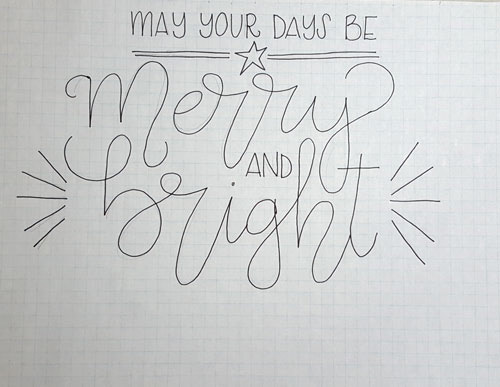 MAY YOUR DAYS BE
Merry
AND
bright